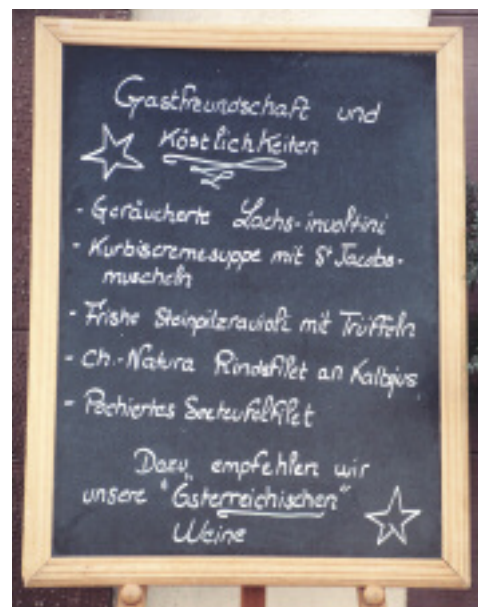 Gastfreundschaft und
Köstlichkeiten
- Geräucherte Lachs-involtini
- Kurbiscremesuppe mit St Jacobs-
muscheln
- Frishe Steinpilzravioli mit Trüffeln
- CH.-Natura Rindsfilet an Kalbsjus
- Pochiertes Seeteufelfilet
Dazu empfehlen wir
unsere "Österreichischen"
Weine